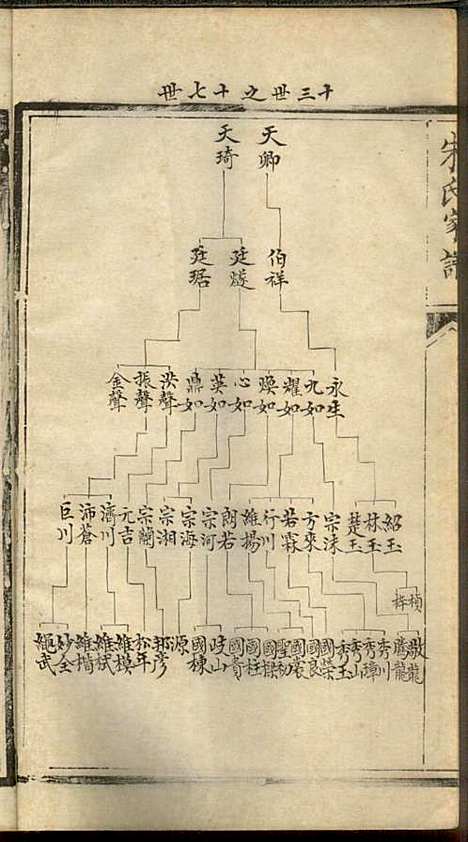 十三世之十七世
天卿
天琦
伯祥
廷燧
廷琚
永生
九如
耀如
煥如
心如
英如
鼎如
洪聲
振聲
金聲
紹玉
林玉
楚玉
宗洙
方來
若霖
行川
維揚
朗若
宗河
宗海
宗湘
宗蘭
元吉
濟川
沛蒼
巨川
楨
梓
龍
騰龍
秀川
秀璋
秀山
秀玉
國榮
國良
國宸
國樑
國柱
岐山
國棟
源
邦彥
松年
維模
維栻
維楷
妙全
繩武